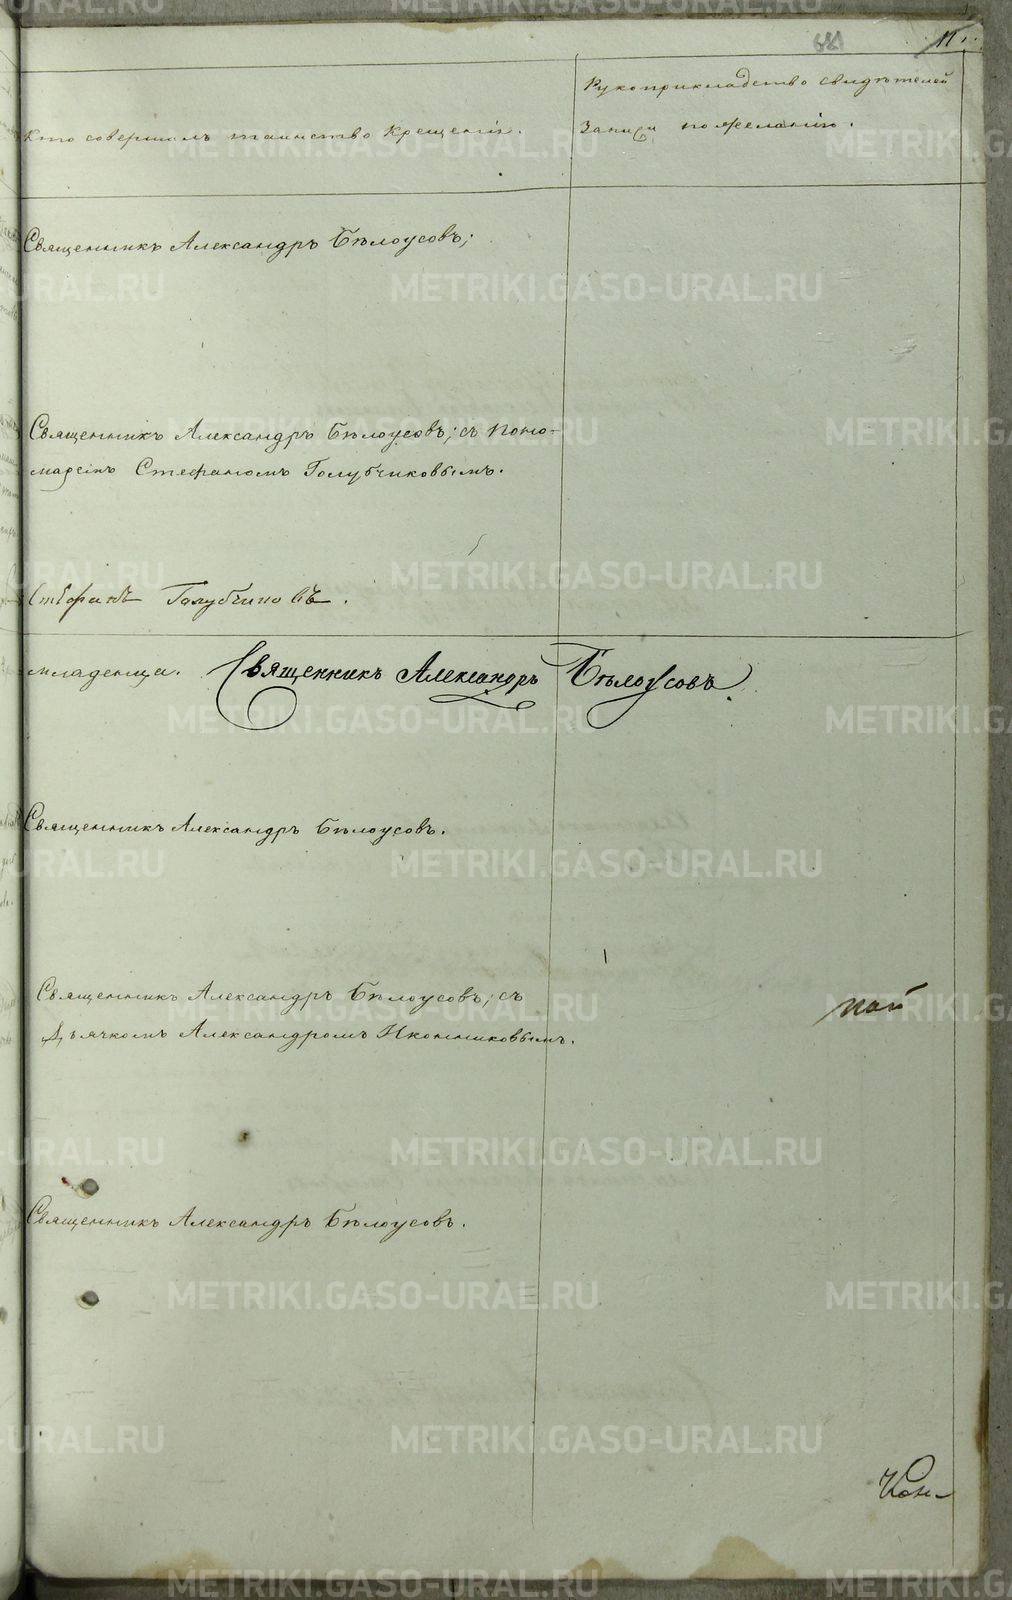 681
11.
Рукоприкладство свидѣтелей
Кто совершилъ таинство крещенія.
записи по желанію.
Священникъ Александръ Бѣлоусовъ;
Священникъ Александръ Бѣлоусовъ; съ поно-
маремъ Стефаномъ Голубчиковымъ.
Стефанъ Голубчиковъ.
младенца. Священникъ Александръ Бѣлоусовъ.
Священникъ Александръ Бѣлоусовъ.
Священникъ Александръ Бѣлоусовъ; съ
Дьячкомъ Александромъ Иконниковымъ.
Священникъ Александръ Бѣлоусовъ.
METRIKI.GASO-URAL.RU